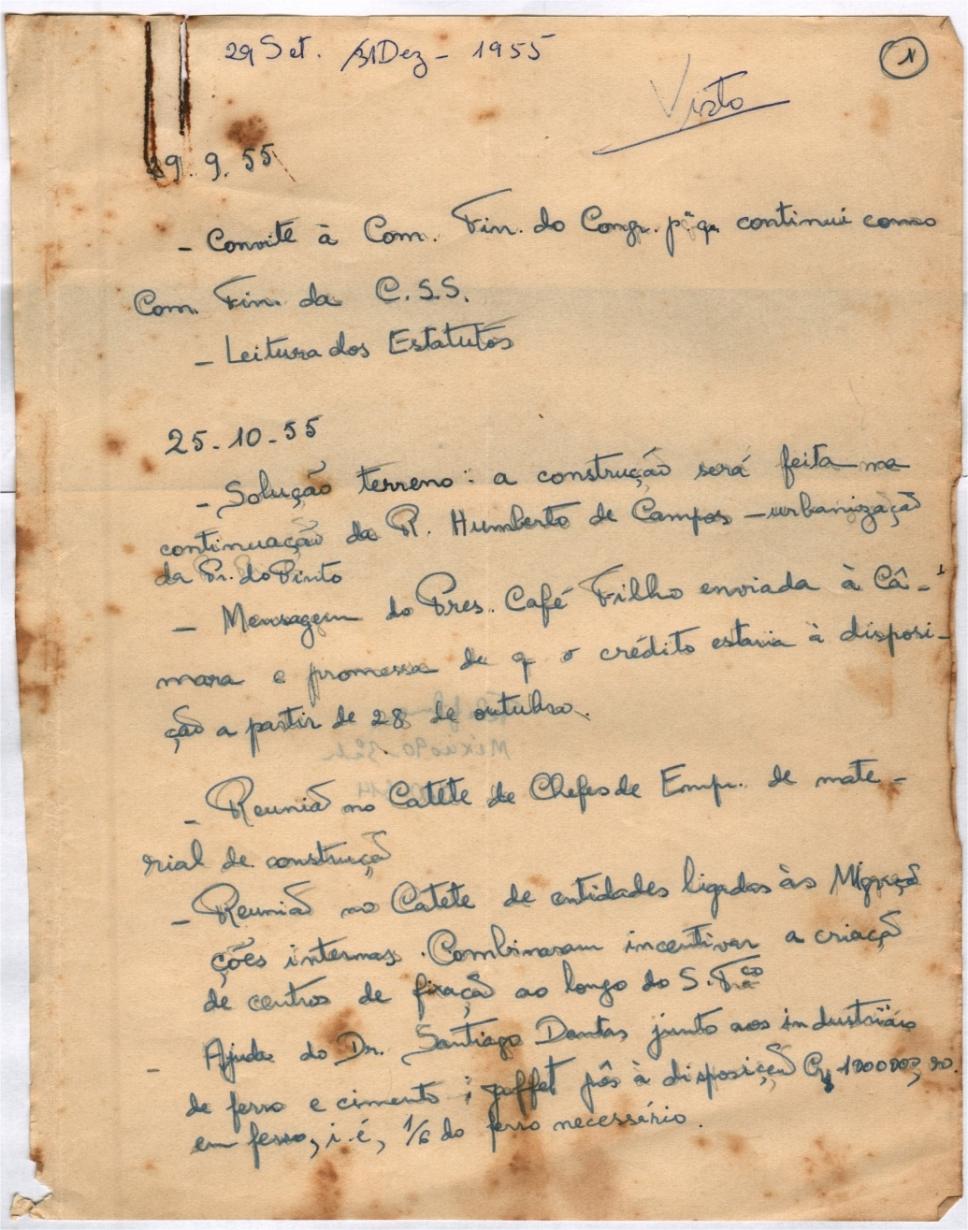 29 Set. /31 Dez - 1955
1
Visto
29. 9. 55
- Convite à Com. Fin. do Congr. p q continui como
Com. Fin. da C.S.S.
- Leitura dos Estatutos
25-10-55
- Solução terreno: a construção será feita na
continuação da R. Humberto de Campos - urbanização
da Pr. do Pinto
- Mensagem do Pres. Café Filho enviada à Câ-
mara e promessa de q o crédito estaria à disposi-
ção a partir de 28 de outubro.
- Reunião no Catete de Chefes de Emp. de mate-
rial de construção
- Reunião no Catete de entidades ligadas às
ções internas. Combinaram incentivar a criação
de centros de fixação ao longo do S. Fco
- Ajuda do Dr. Santiago Dantas junto aos industriais
de ferro e cimento; Jaffet pôs à disposição
em ferro, i.é, 1/6 do ferro necessário.